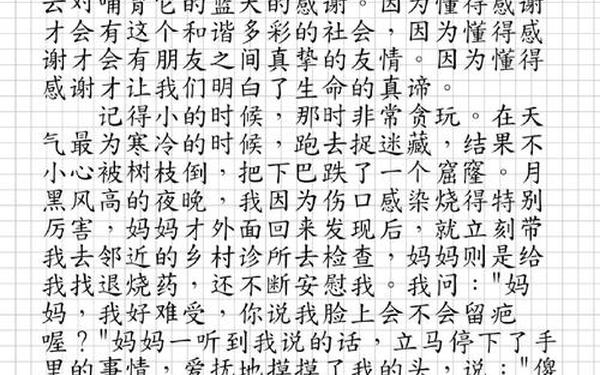 去对哺育它的蓝天的感谢。因为懂得感谢
才会有这个和谐多彩的社会，因为懂得感
谢才会有朋友之间真挚的友情。因为懂得
感谢才让我们明白了生命的真谛。
记得小的时候，那时非常贪玩。在天
气最为寒冷的时候，跑去捉迷藏，结果不
小心被树枝倒，把下巴跌了一个窟窿。月
黑风高的夜晚，我因为伤口感染烧得特别
厉害，妈妈才外面回来发现后，就立刻带
我去邻近的乡村诊所去检查，妈妈则是给
我找退烧药，还不断安慰我。我问："妈
妈，我好难受，你说我脸上会不会留疤
喔？"妈妈一听到我说的话，立马停下了手
里的事情，爱抚地摸摸了我的头，说："傻